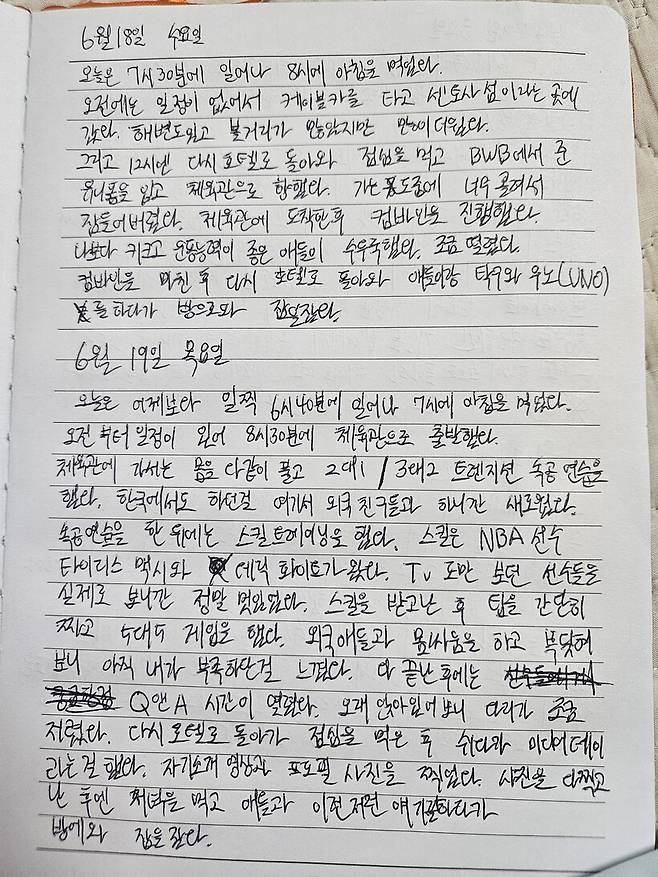 6월18일 수요일
오늘은 7시30분에 일어나 8시에 아침을 먹었다.
오전에는 일정이 없어서 케이블카를 타고 센토사 섬이라는 곳에
갔다. 해변도있고 볼거리가 많았지만 많이 더웠다.
그리고 12시엔 다시 호텔로 돌아와 점심을 먹고 BWB에서 준
유니폼을 입고 체육관으로 향했다. 가는 도중에 너무 졸려서
잠들어버렸다. 체육관에 도착한후 컴바인을 진행했다.
나보다 키크고 운동능력이 좋은 애들이 수두룩했다. 조금 떨렸다.
컴바인을 마친 후 다시 호텔로 돌아와 애들이랑 탁구와 우노(UNO)
를 하다가 방으로와 잠을잤다.
6월 19일 목요일
오늘은 어제보다 일찍 6시40분에 일어나 7시에 아침을 먹었다.
오전 부터 일정이 있어 8시30분에 체육관으로 출발했다.
체육관에 가서는 몸을 다같이 풀고 2대1 / 3대2 트렌지션 속공 연습을
했다. 한국에서도 하던걸 여기서 외국 친구들과 하니간 새로웠다.
속공연습을 한 뒤에는 스킬트레이닝을 했다. 스킬은 NBA 선수
타이디스 멕시와 데릭 화이트가 왔다. Tv 로만 보던 선수들을
실제로 보니간 정말 멋있었다. 스킬을 받고난 후 팁을 간단히
찍고 5대5 게임을 했다. 외국애들과 몸싸움을 하고 부딪혀
보니 아직 내가 부족하단걸 느꼈다. 다 끝난 후에는
Q앤A 시간이 열렸다. 오래 앉아있어보니 다리가 조금
저렸다. 다시 호텔로 돌아가 점심을 먹은 후 쉬다가 미디어데이
라는걸 했다. 자기소개 영상과 프로필 사진을 찍었다. 사진을 다찍고
난 후엔 저녁을 먹고 애들과 이런저런 얘기를하다가
방에와 잠을 잤다.